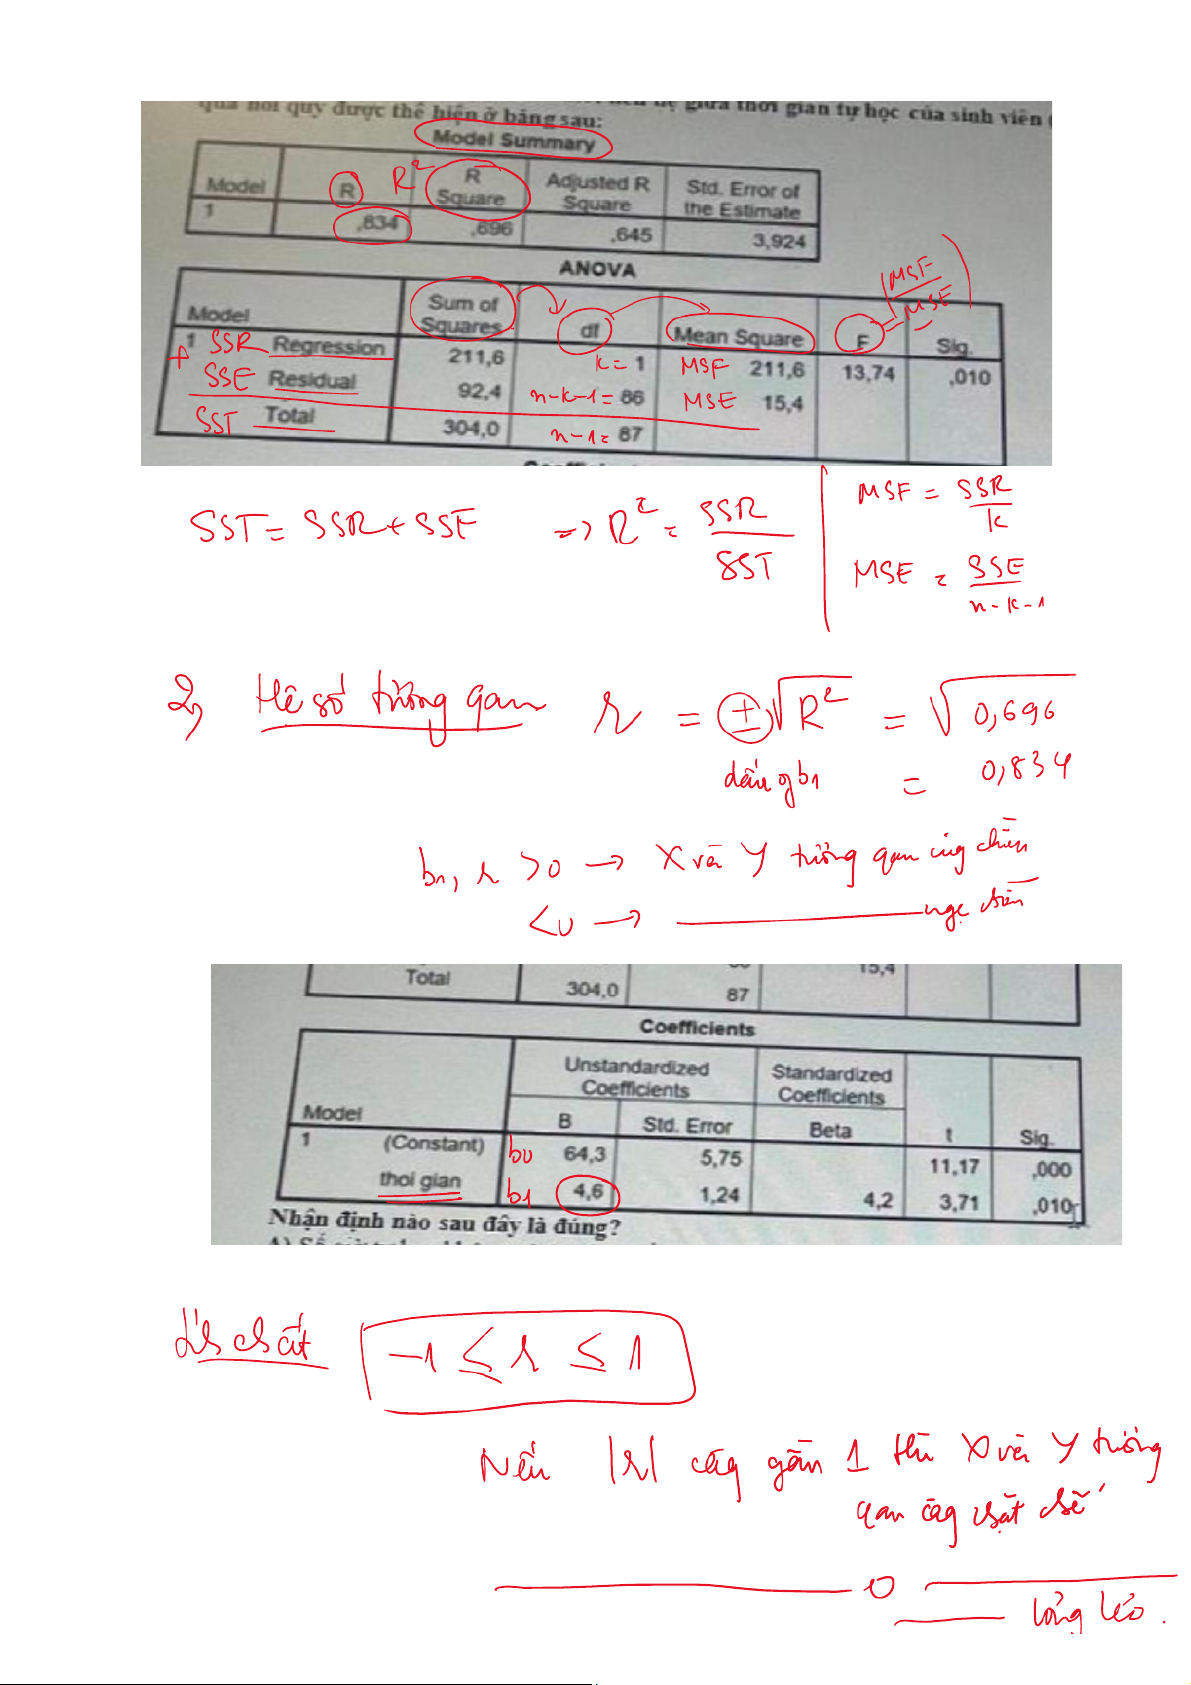 quả hồi quy được thể hiện ở bảng sau: hệ giữa thời gian tự học của sinh viên
Model Summary
Model R R² R Square Adjusted R Square Std. Error of the Estimate
1 ,834 ,696 ,645 3,924
ANOVA
Model Sum of Squares df Mean Square F = MSF/MSE Sig.
1 SSR Regression 211,6 k = 1 MSF 211,6 13,74 ,010
+ SSE Residual 92,4 n-k-1 = 86 MSE 15,4
SST Total 304,0 n-1 = 87
SST = SSR + SSE => R² = SSR/SST
MSF = SSR/k
MSE = SSE/n-k-1
2) Hệ số tương quan r = ±√R² = √0,696
dấu of b1 = 0,834
b1, r >0 → X và Y tương quan cùng chiều
<0 → ngc chiều
Total 304,0 87 15,4
Coefficients
Model Unstandardized Coefficients Standardized Coefficients t Sig.
B Std. Error Beta
1 (Constant) b0 64,3 5,75 11,17 ,000
thoi gian b1 4,6 1,24 4,2 3,71 ,010
Nhận định nào sau đây là đúng?
-1 ≤ r ≤ 1
Nếu |r| càng gần 1 thì X và Y tương
quan càng chặt chẽ
0
lỏng lẻo.